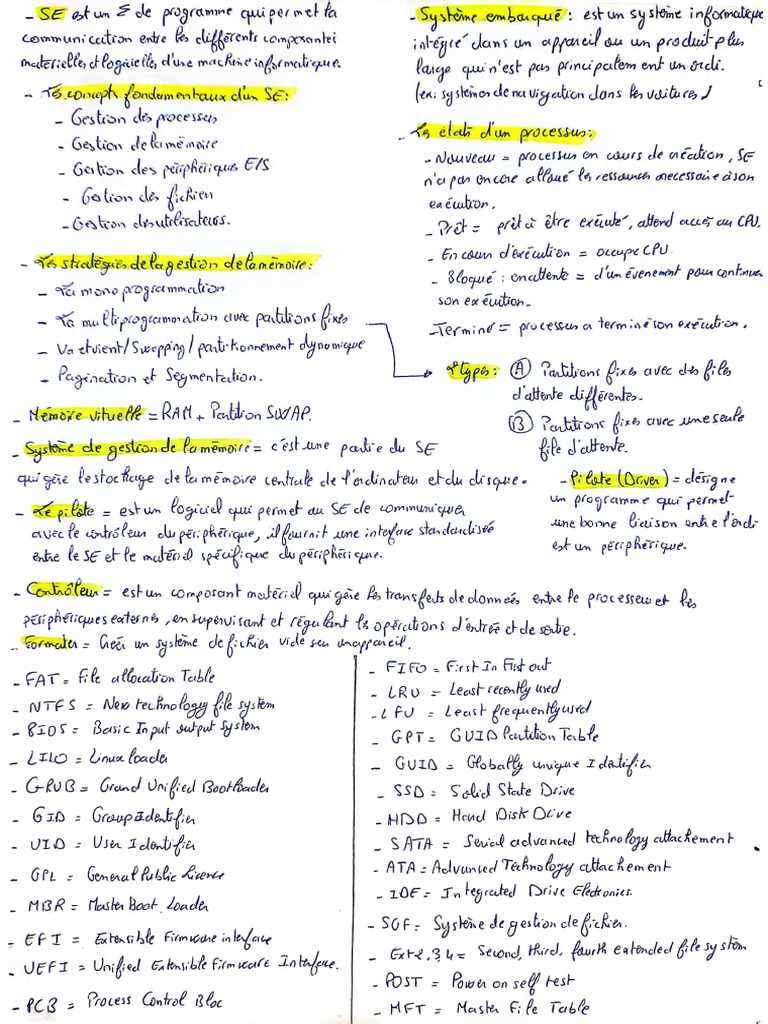 - SE est un Σ de programme qui permet la
communication entre les différents composantes
matérielles et logicielles d'une machine informatique.
- Les concepts fondamentaux d'un SE:
- Gestion des processus
- Gestion de la mémoire
- Gestion des périphériques E/S
- Gestion des fichiers
- Gestion des utilisateurs.
- Les stratégies de la gestion de la mémoire:
- La mono programmation
- La multiprogrammation avec partitions fixes
- Va et vient/Swapping/partitionnement dynamique
- Pagination et Segmentation.
- Mémoire vituelle = RAM + Partition SWAP.
- Système de gestion de la mémoire = c'est une partie du SE
qui gère le stockage de la mémoire centrale de l'ordinateur et du disque.
- Le pilote = est un logiciel qui permet au SE de communiquer
avec le contrôleur du périphérique, il fournit une interface standardisée
entre le SE et le matériel spécifique du périphérique.
- Système embarqué : est un système informatique
intégré dans un appareil ou un produit plus
large qui n'est pas principalement un ordi.
(ex: systèmes de navigation dans les voitures)
- Les états d'un processus:
- Nouveau = processus en cours de création, SE
n'a pas encore alloué les ressources necessaire à son
exécution.
- Prêt = prêt à être exécuté, attend accès au CPU.
- En cours d'éxécution = occupe CPU.
- Bloqué : en attente = d'un évenement pour continuer
son exécution.
- Terminé = processus a terminé son exécution.
2 types: (A) Partitions fixes avec des files
d'attente différentes.
(B) Partitions fixes avec une seule
file d'attente.
- Pilote (Driver) = désigne
un programme qui permet
une bonne liaison entre l'ordi
est un périphérique.
- Contrôleur = est un composant matériel qui gère les transferts de données entre le processeur et les
périphériques externes, en supervisant et régulant les opérations d'entrée et de sortie.
- Formater = Créer un système de fichier vide sur un appareil.
- FAT = File allocation Table
- NTFS = New technology file system
- BIOS = Basic Input output System
- LILO = Linux loader
- GRUB = Grand Unified Bootloader
- GID = Group Identifier
- UID = User Identifier
- GPL = General Public Licence
- MBR = Master Boot Loader
- EFI = Extensible Firmware interface
- UEFI = Unified Extensible Firmware Interface.
- PCB = Process Control Bloc
- FIFO = First In First out
- LRU = Least recently used
- LFU = Least frequently used
- GPT = GUID Partition Table
- GUID = Globally unique Identifier
- SSD = Solid State Drive
- HDD = Hard Disk Drive
- SATA = Serial advanced technology attachement
- ATA = Advanced Technology attachement
- IDE = Integrated Drive Electronics.
- SGF = Système de gestion de fichier.
- Ext 2,3,4 = Second, third, fourth extended file system
- POST = Power on self test
- MFT = Master File Table